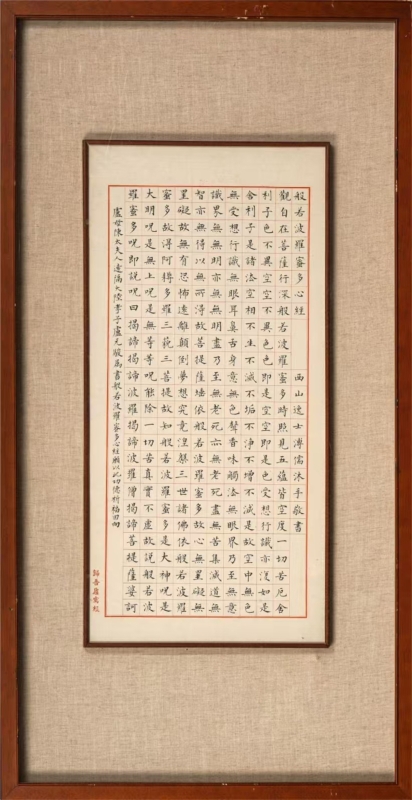 般若波羅蜜多心經 西山逸士溥儒沐手敬書
觀自在菩薩行深般若波羅蜜多時照見五蘊皆空度一切苦厄舍
利子色不異空空不異色色即是空空即是色受想行識亦復如是
舍利子是諸法空相不生不滅不垢不淨不增不減是故空中無色
無受想行識無眼耳鼻舌身意無色聲香味觸法無眼界乃至無意
識界無無明亦無無明盡乃至無老死亦無老死盡無苦集滅道無
智亦無得以無所得故菩提薩埵依般若波羅蜜多故心無罣礙無
罣礙故無有恐怖遠離顛倒夢想究竟涅槃三世諸佛依般若波羅
蜜多故得阿耨多羅三藐三菩提故知般若波羅蜜多是大神呪是
大明呪是無上呪是無等等呪能除一切苦真實不虛故說般若波
羅蜜多呪即說呪曰揭諦揭諦波羅揭諦波羅僧揭諦菩提薩婆訶
盧母陳太夫人遠隔大陸孝子盧元駿為書般若波羅蜜多心經願以此功德祈福回向
吾廬寫經